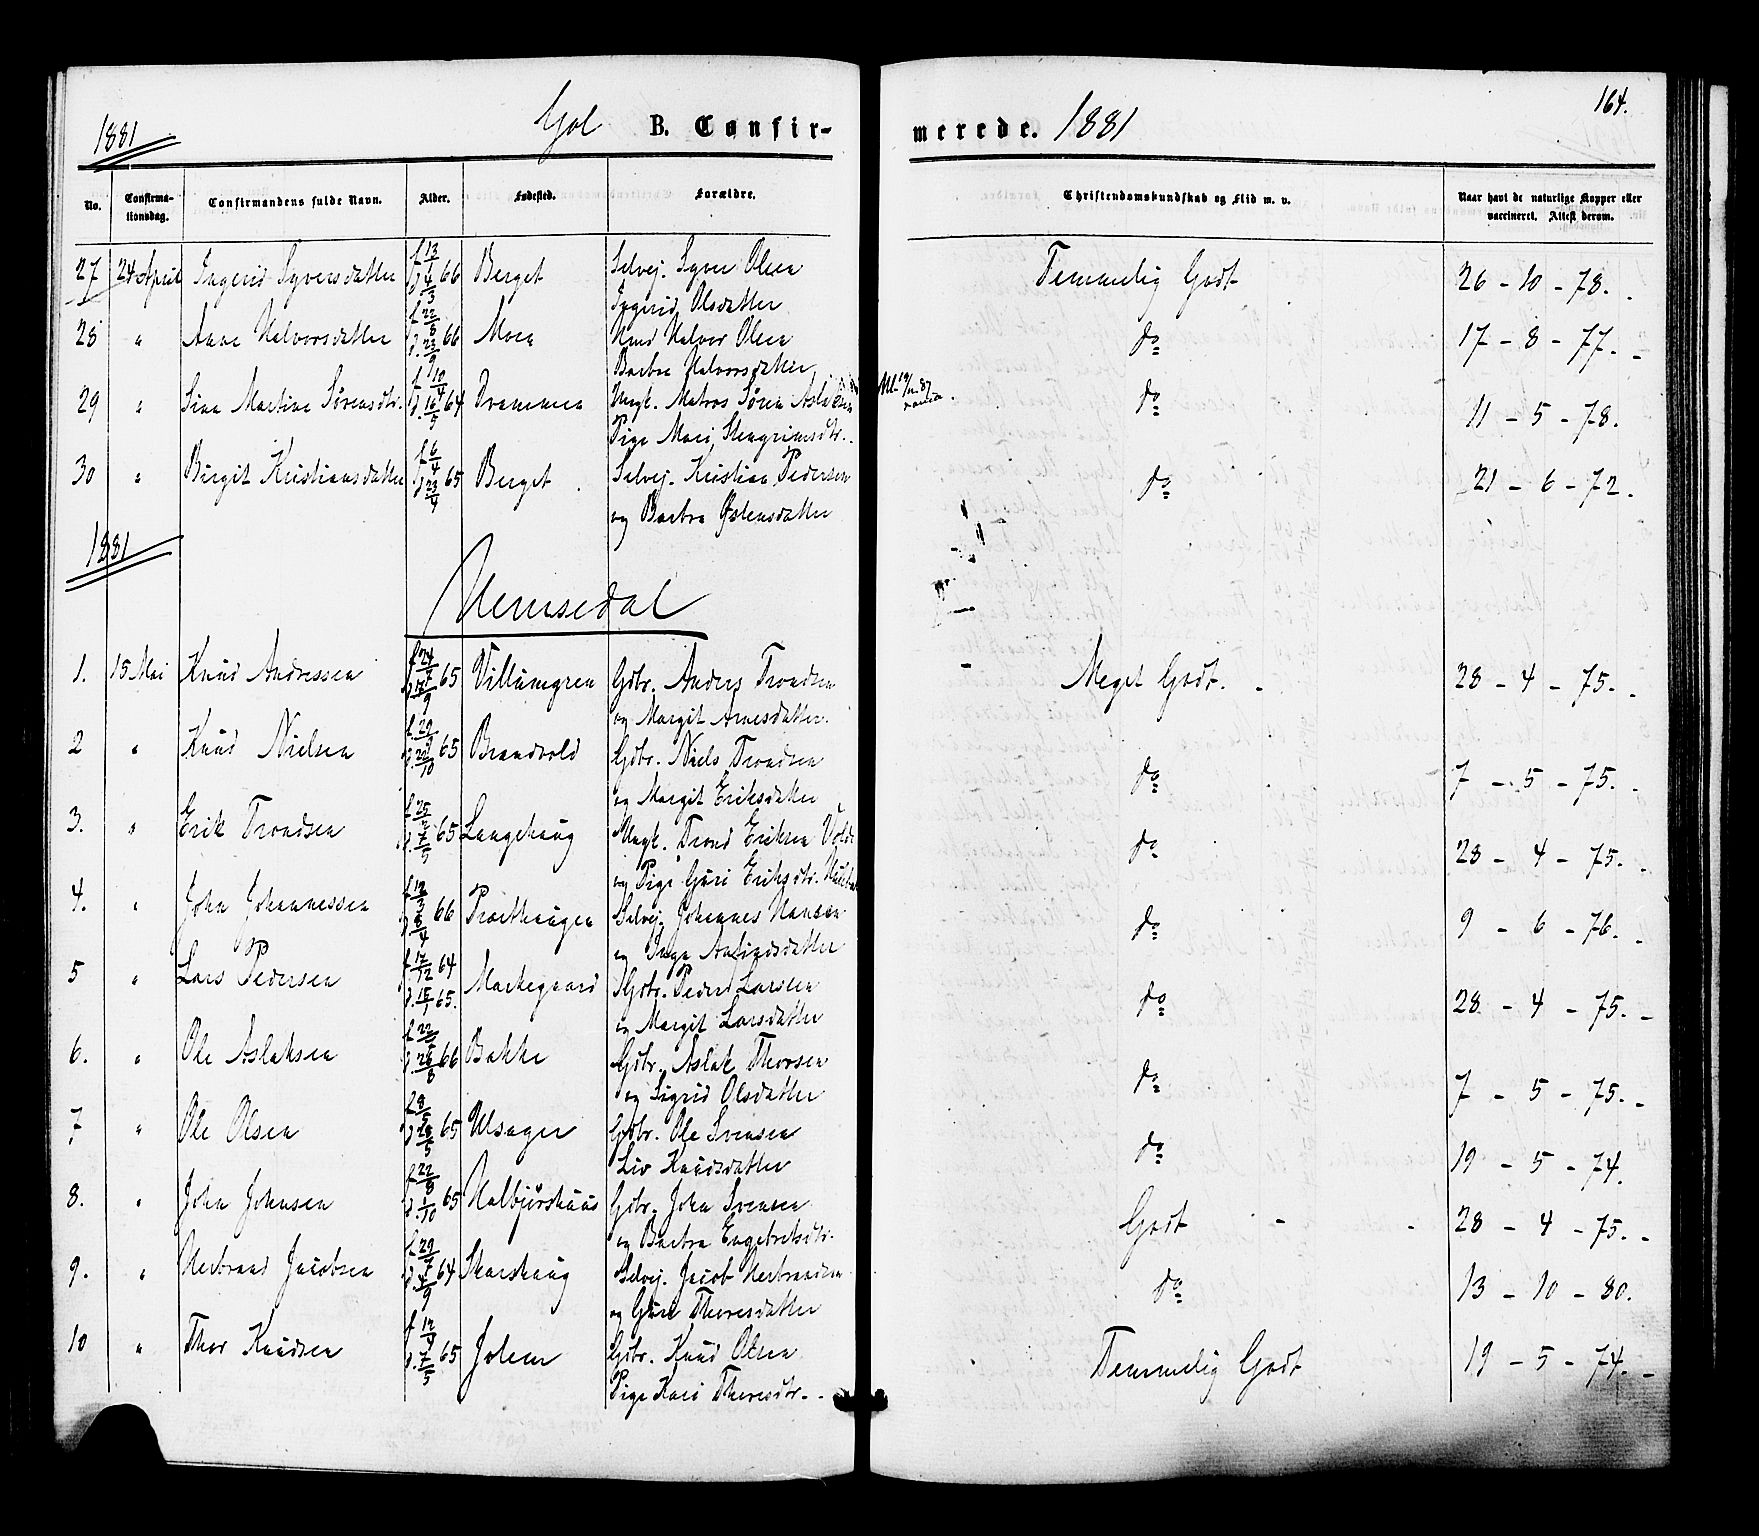 1881 Gol B. Confirmerede. 1881 164.
No. Confirmationsdag. Confirmandens fulde Navn. Alder. Fødested. Forældre. Christendomskundskab og Flid m. v. Naar havt de naturlige Kopper eller vaccineret. Attest derom.
27 24 April Ingerid Syversdatter f 13/ d 4/3 66 Berget Selvej. Syver Olsen Temmelig Godt 26 - 10 - 78.
Ingerid Olsdatter
28 " Anne Halvorsdatter f 22/8 d. 23/9 66 Moen Hmd Halvor Olsen do 17 - 8 - 77.
Barbra Halvorsdatter
29 " Sina Martine Sørensdtr. f 10/4 d. 16/5 64 Drammen Ungk. Matros Søren do 11 - 5 - 78.
Pige Mari Stengrimsdtr.
30 " Birgit Kristiansdatter f 6/4 d 23/4 65 Berget Selvej. Kristian Pedersen do 21 - 6 - 72.
og Barbra Østensdatter
1881
Hemsedal
1. 15 Mai Knud Andressen f 24/7 d 17/9 65 Villumgren Gdbr. Anders Trondsen Meget Godt. 28 - 4 - 75.
og Margit Arnesdatter.
2 " Knud Nielsen f. 29/9 d. 22/10 65 Brandvold Gdbr. Niels Trondsen do 7 - 5 - 75.
og Margit Eriksdatter
3. " Erik Trondsen f. 25/2 d. 7/5 65 Langehaug Ungk. Trond Eriksen do 28 - 4 - 75.
og Pige Guri Eriksdtr.
4. " John Johannessen f 12/3 d 8/4 66 Præsthaugen Selvej. Johannes Hansen do 9 - 6 - 76.
og Inga Anfindsdatter
5 " Lars Pedersen f 17/12 64 d. 15/1 65. Markegaard Gdbr. Peder Larsen do 28 - 4 - 75.
og Margit Larsdatter
6. " Ole Aslaksen f 22/5 d. 26/8 66 Bakke Gdbr. Aslak Thorsen do 7 - 5 - 75.
og Sigrid Olsdatter
7 " Ole Olsen f 8/5 d 28/5 65 Ulsager Gdbr. Ole Svensen do 19 - 5 - 74.
Liv Knudsdatter
8. " John Johnsen f 22/8 d. 1/10 65 Halbjørshuus Gdbr. John Svensen Godt 28 - 4 - 75.
og Barbra Engebretsdtr.
9. " Herbrand Jacobsen f 29/7 d. 4/9 64 Skarshaug Selvej. Jacob Herbrandsen do 13 - 10 - 80.
og Guri Thoresdatter
10 " Thor Knudsen f 12/4 d. 7/5 65 Jolem Gdbr. Knud Olsen Temmelig Godt 19 - 5 - 74.
Pige Kari Thoresdtr.